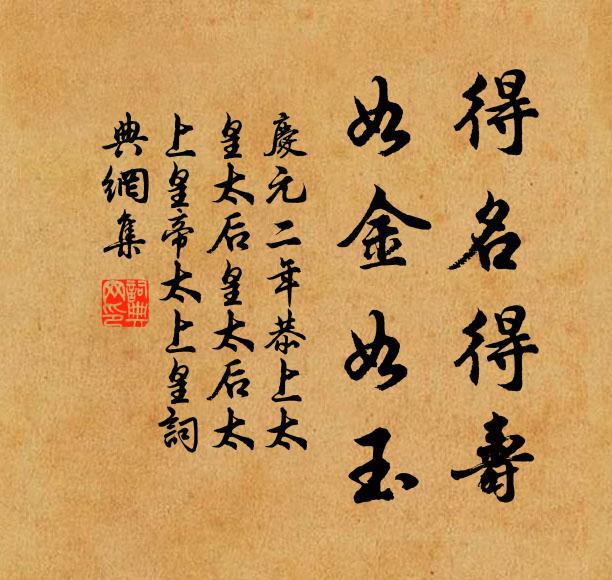 得名得壽
如金如玉
慶元二年恭上太
皇太后皇太后太
上皇帝太上皇詞
典網集
詞典
网印